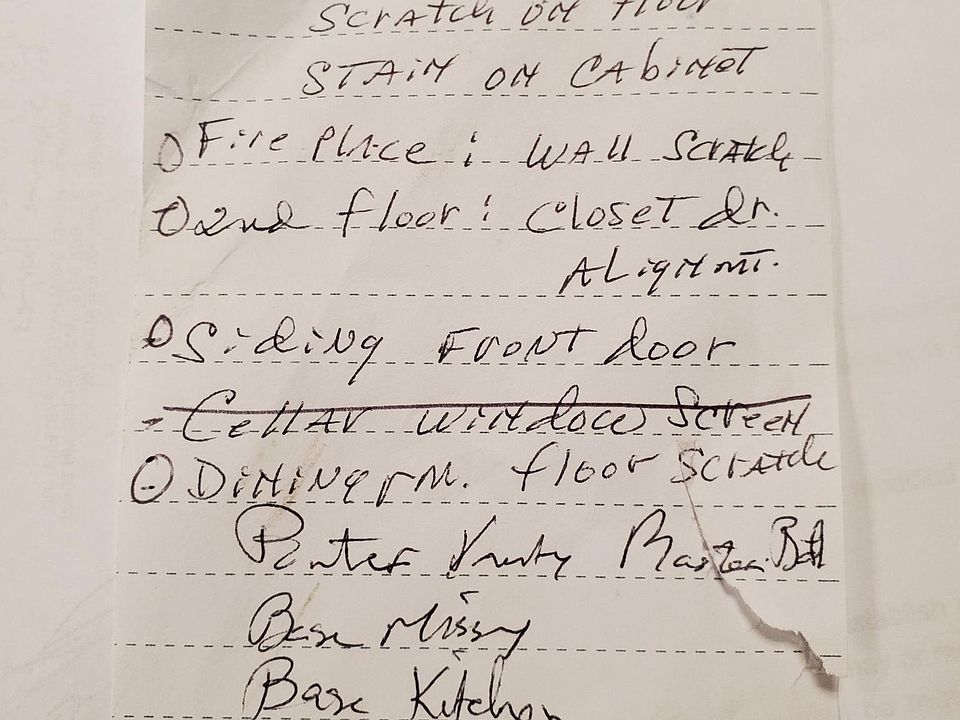 Scratch on floor
STAIN ON CABINET
Fire Place : WALL Scratch
2nd floor : Closet dr.
ALignmt.
Siding FRONT door
- Cellar window Screen
Dining rm. floor Scratch
Vanity Master Bath
Base Missing
Base Kitchen